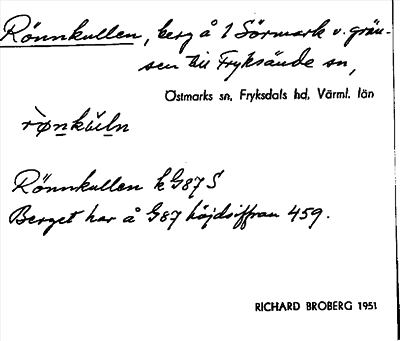 Rönnkullen, berg å 1 Sörmark v. grän-
sen till Fryksände sn,
Östmarks sn, Fryksdals hd, Värml. län
rø̀nkŭln
Rönnkullen k G87 S
Berget har å G87 höjdsiffran 459.
RICHARD BROBERG 1951